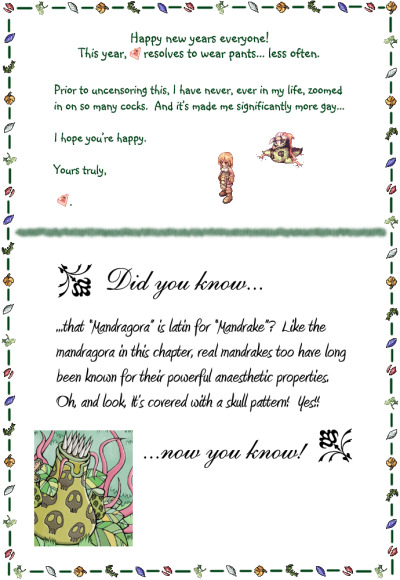 Happy new years everyone!
This year, resolves to wear pants... less often.
Prior to uncensoring this, I have never, ever in my life, zoomed
in on so many cocks. And it's made me significantly more gay...
I hope you're happy.
Yours truly,
.
Did you know...
...that "Mandragora" is latin for "Mandrake"? Like the
mandragora in this chapter, real mandrakes too have long
been known for their powerful anaesthetic properties.
Oh, and look, it's covered with a skull pattern! Yes!!
...now you know!